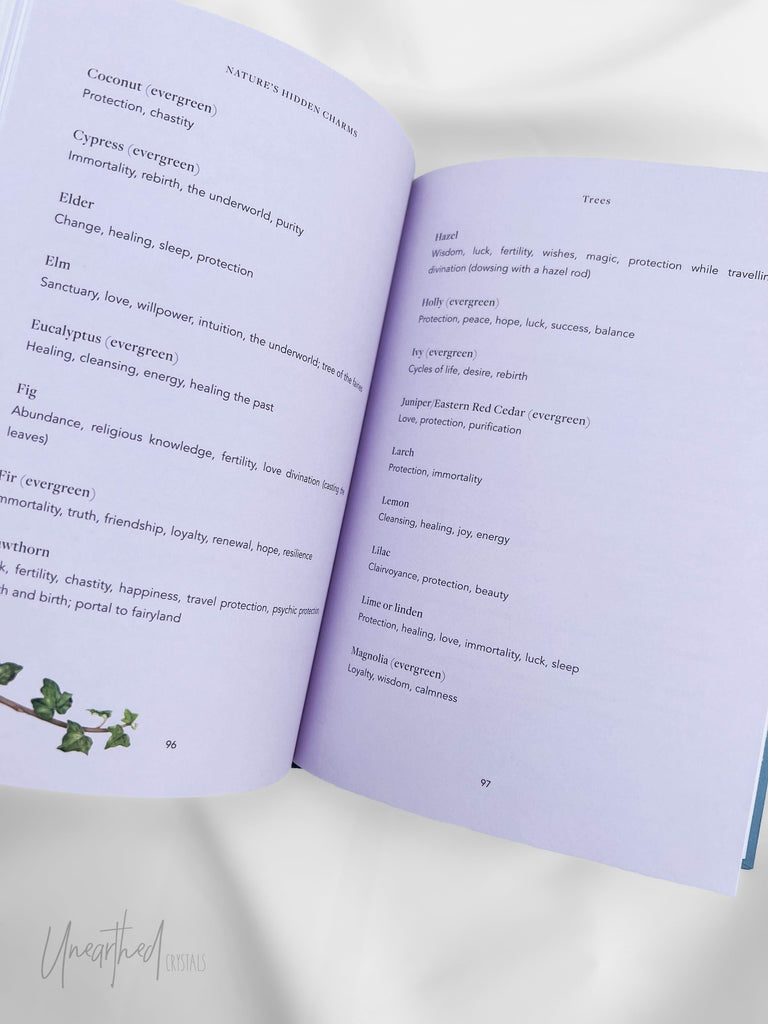 NATURE'S HIDDEN CHARMS
Coconut (evergreen)
Protection, chastity
Cypress (evergreen)
Immortality, rebirth, the underworld, purity
Elder
Change, healing, sleep, protection
Elm
Sanctuary, love, willpower, intuition, the underworld; tree of the fairies
Eucalyptus (evergreen)
Healing, cleansing, energy, healing the past
Fig
Abundance, religious knowledge, fertility, love divination (casting the
leaves)
Fir (evergreen)
mmortality, truth, friendship, loyalty, renewal, hope, resilience
wthorn
k, fertility, chastity, happiness, travel protection, psychic protection
th and birth; portal to fairyland
96
Trees
Hazel
Wisdom, luck, fertility, wishes, magic, protection while travellin
divination (dowsing with a hazel rod)
Holly (evergreen)
Protection, peace, hope, luck, success, balance
Ivy (evergreen)
Cycles of life, desire, rebirth
Juniper/Eastern Red Cedar (evergreen)
Love, protection, purification
Larch
Protection, immortality
Lemon
Cleansing, healing, joy, energy
Lilac
Clairvoyance, protection, beauty
Lime or linden
Protection, healing, love, immortality, luck, sleep
Magnolia (evergreen)
Loyalty, wisdom, calmness
97
Unearthed CRYSTALS